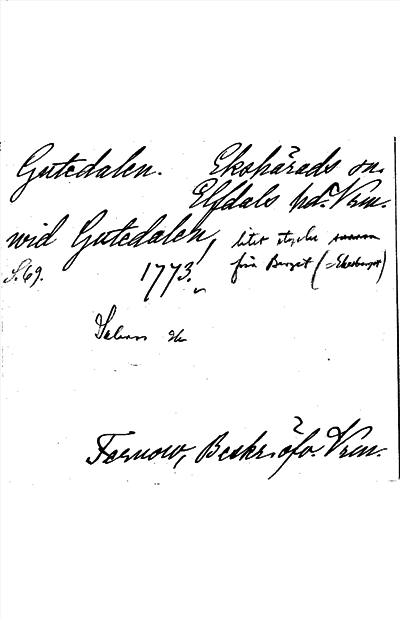 Gutedalen. Ekshärads sn.
Elfdals hd. Vrm.
wid Gutedalen, litet stycke
från Berget (=Ekesberget)
S. 69. 1773.
Saknas
Fernow, Beskr. öfv. Vrm.